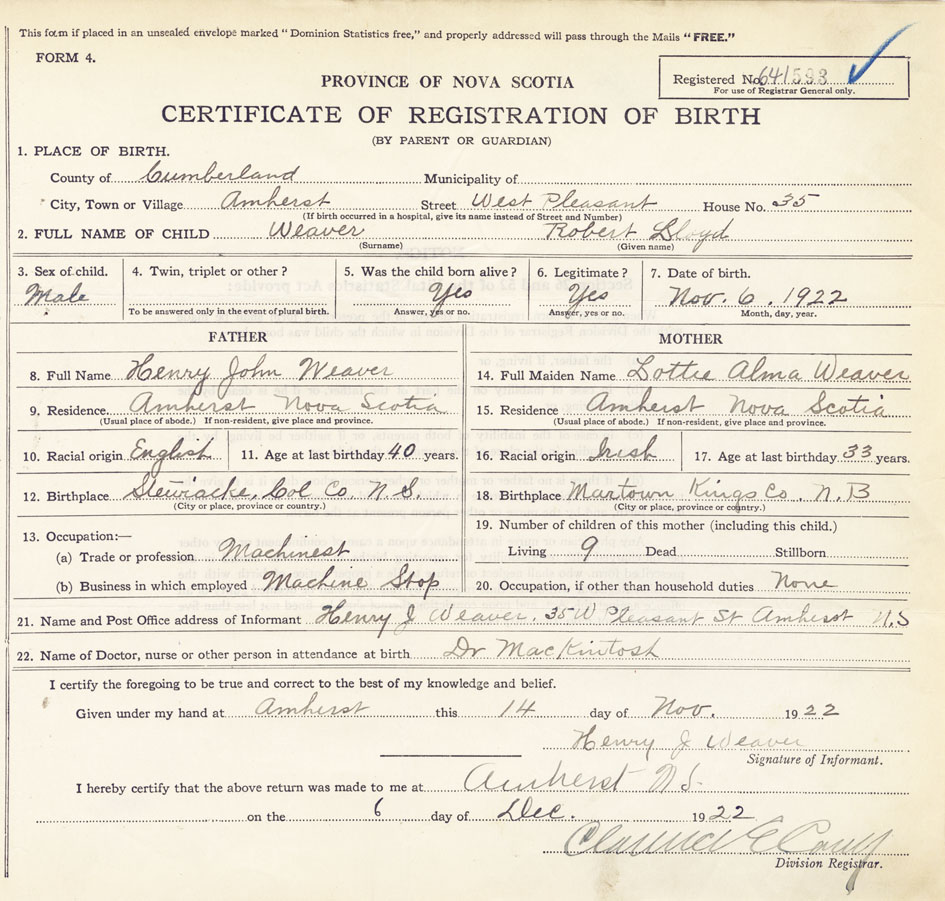 This form if placed in an unsealed envelope marked "Dominion Statistics free," and properly addressed will pass through the Mails "FREE."
FORM 4.
Registered No. 641593
For use of Registrar General only.
PROVINCE OF NOVA SCOTIA
CERTIFICATE OF REGISTRATION OF BIRTH
(BY PARENT OR GUARDIAN)
1. PLACE OF BIRTH.
County of Cumberland Municipality of
City, Town or Village Amherst Street West Pleasant House No. 35
(If birth occurred in a hospital, give its name instead of Street and Number)
2. FULL NAME OF CHILD Weaver Robert Lloyd
(Surname) (Given name)
3. Sex of child. 4. Twin, triplet or other? 5. Was the child born alive? 6. Legitimate? 7. Date of birth.
Male Yes Yes Nov. 6. 1922
To be answered only in the event of plural birth. Answer, yes or no. Answer, yes or no. Month, day, year.
FATHER MOTHER
8. Full Name Henry John Weaver 14. Full Maiden Name Lottie Alma Weaver
9. Residence. Amherst Nova Scotia 15. Residence Amherst Nova Scotia
(Usual place of abode.) If non-resident, give place and province. (Usual place of abode.) If non-resident, give place and province.
10. Racial origin English 11. Age at last birthday 40 years. 16. Racial origin Irish 17. Age at last birthday 33 years.
12. Birthplace Stewiacke, Col Co. N.S. 18. Birthplace Martown Kings Co. N.B
(City or place, province or country.) (City or place, province or country.)
13. Occupation:— 19. Number of children of this mother (including this child.)
(a) Trade or profession Machinest Living 9 Dead Stillborn
(b) Business in which employed Machine Stop 20. Occupation, if other than household duties None
21. Name and Post Office address of Informant Henry J Weaver. 35 W Pleasant St Amherst N.S
22. Name of Doctor, nurse or other person in attendance at birth Dr MacKintosh
I certify the foregoing to be true and correct to the best of my knowledge and belief.
Given under my hand at Amherst this 14 day of Nov. 1922
Henry J Weaver
Signature of Informant.
I hereby certify that the above return was made to me at Amherst N.S.
on the 6 day of Dec. 1922
Clarence E
Division Registrar.